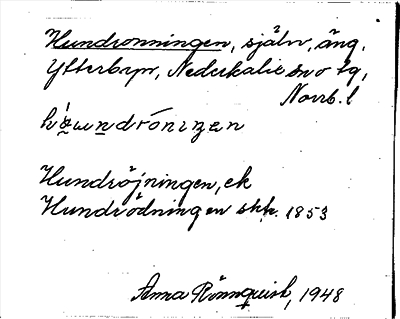 Hundronningen, själv, äng.
Ytterbyn, Nederkalix sn o tg,
Norrb. l
Hundröjningen, ek
Hundrödningen skk. 1853
Anna Rönnquist, 1948